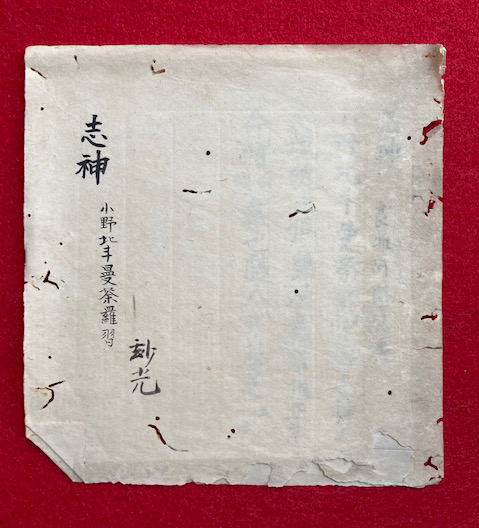 玅光
小野北斗曼荼羅習
志神